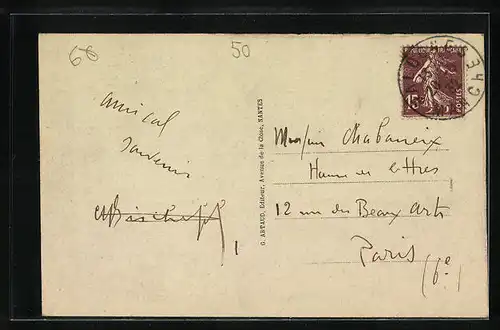 66
50
amical
souvenir
G. ARTAUD, Editeur, Avenue de la Close, NANTES
Monsieur Chabaneix
Homme de lettres
12 rue des Beaux Arts
Paris (6e)
15c
POSTES